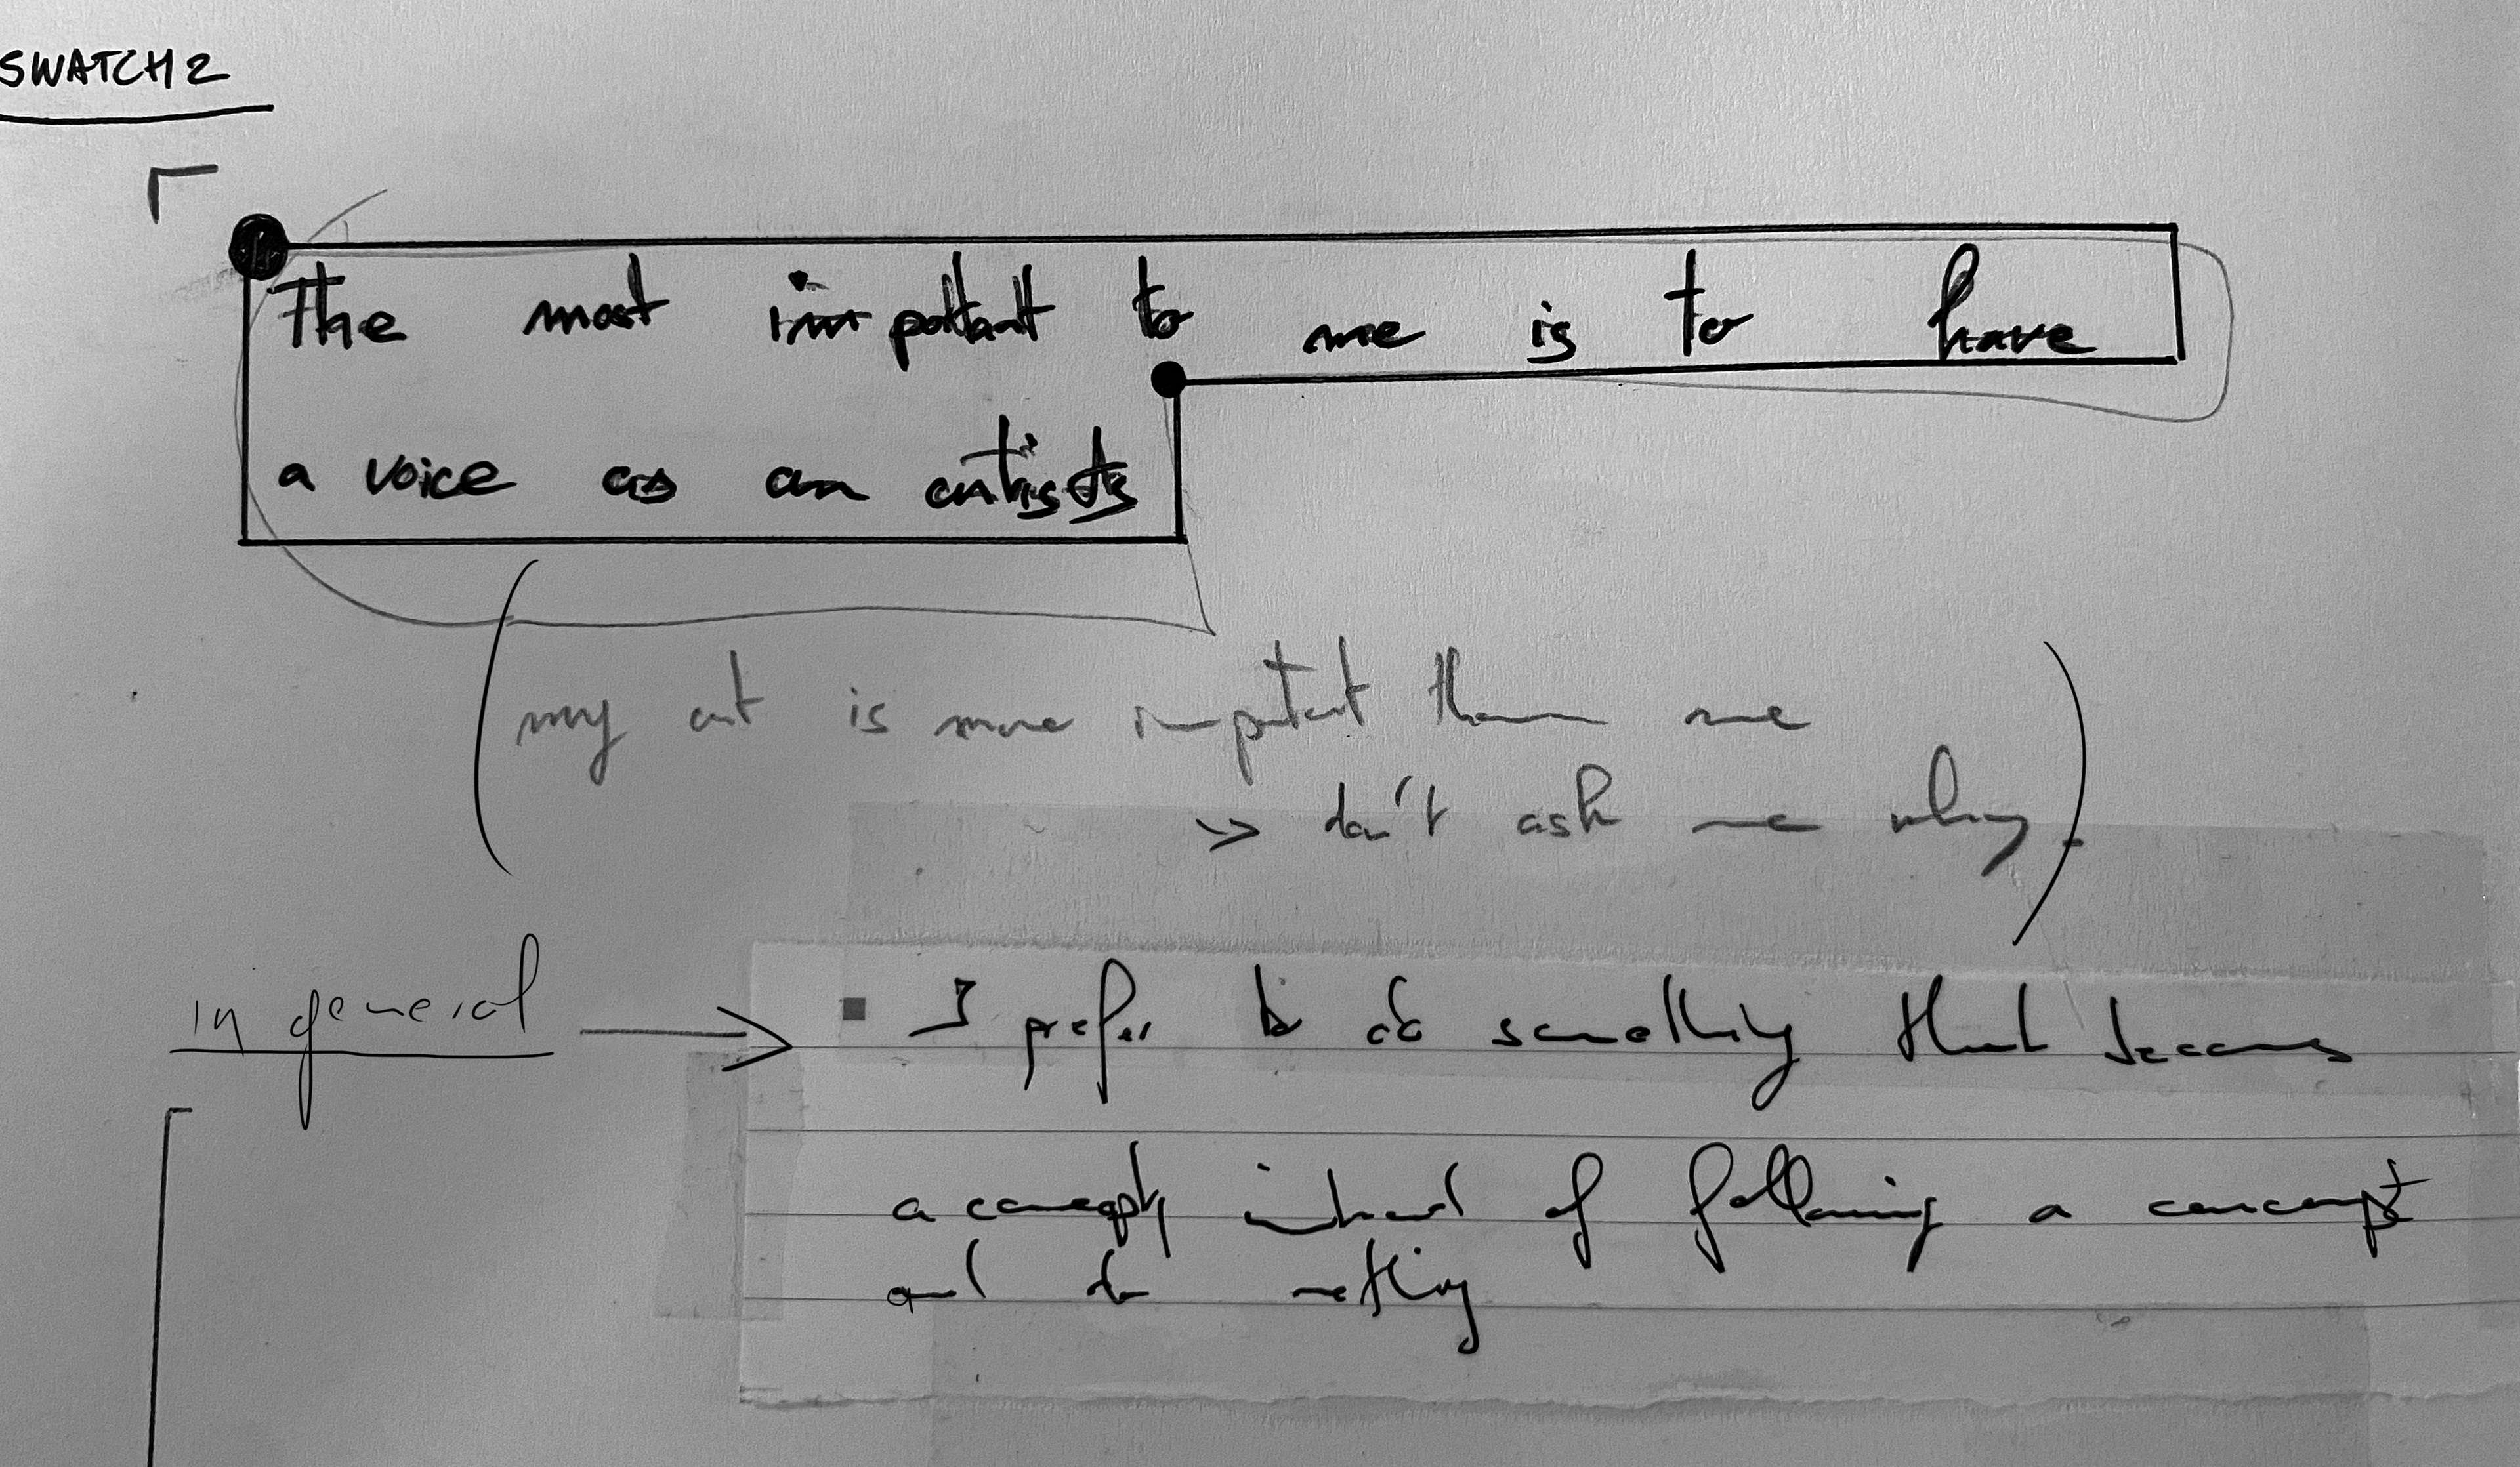 SWATCH 2
The most important to me is to have
a voice as an artists
my art is more important than me
>> don't ask me why.
in general
I prefer to do something that becomes
a concept, instead of following a concept
and do nothing